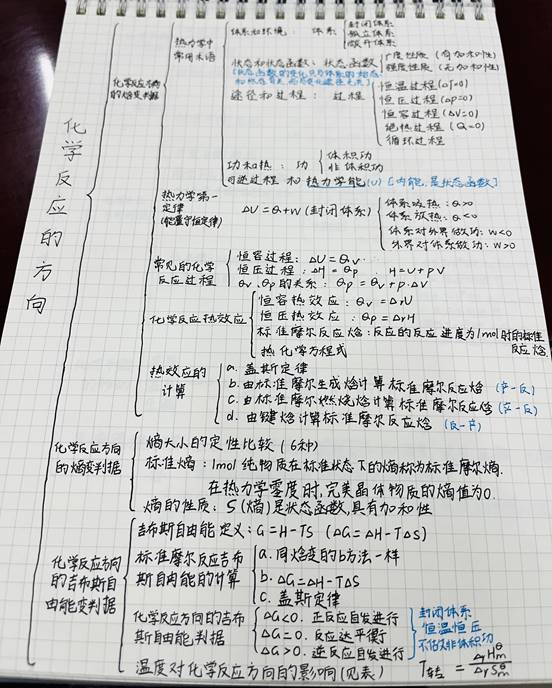 化学反应的方向
化学反应方向的焓变判据
热力学中常用术语
体系和环境：体系
封闭体系
孤立体系
敞开体系
状态和状态函数：状态函数
广度性质（有加和性）
强度性质（无加和性）
途径和过程：过程
恒温过程（ΔT=0）
恒压过程（ΔP=0）
恒容过程（ΔV=0）
绝热过程（Q=0）
循环过程
功和热：功
体积功
非体积功
可逆过程 和 热力学能(U) [内能，是状态函数]
热力学第一定律
(能量守恒定律)
ΔU = Q+W (封闭体系)
体系吸热：Q>0
体系放热：Q<0
体系对外界做功：W<0
外界对体系做功：W>0
常见的化学反应过程
恒容过程：ΔU = Qv
恒压过程：ΔH = Qp . H=U+PV
Qv.Qp的关系：Qp = Qv + P·ΔV
化学反应热效应
恒容热效应：Qv = ΔrU
恒压热效应：Qp = ΔrH
标准摩尔反应焓：反应的反应进度为1mol时的标准反应焓
热化学方程式
热效应的计算
a. 盖斯定律
b. 由标准摩尔生成焓计算标准摩尔反应焓 (产-反)
c. 由标准摩尔燃烧焓计算标准摩尔反应焓
d. 由键焓计算标准摩尔反应焓 (反-产)
化学反应方向的熵变判据
熵大小的定性比较（6种）
标准熵：1mol纯物质在标准状态下的熵称为标准摩尔熵.
在热力学零度时,完美晶体物质的熵值为0.
熵的性质：S(熵)是状态函数,具有加和性
化学反应方向的吉布斯自由能变判据
吉布斯自由能定义：G=H-TS (ΔG=ΔH-TΔS)
标准摩尔反应吉布斯自由能的计算
a. 同焓变的b方法一样
b. ΔG=ΔH-TΔS
c. 盖斯定律
化学反应方向的吉布斯自由能判据
ΔG<0. 正反应自发进行
ΔG=0. 反应达平衡
ΔG>0. 逆反应自发进行
封闭体系
恒温恒压
不做非体积功
温度对化学反应方向的影响 (见表)
T转 = ΔrHmθ / ΔrSmθ